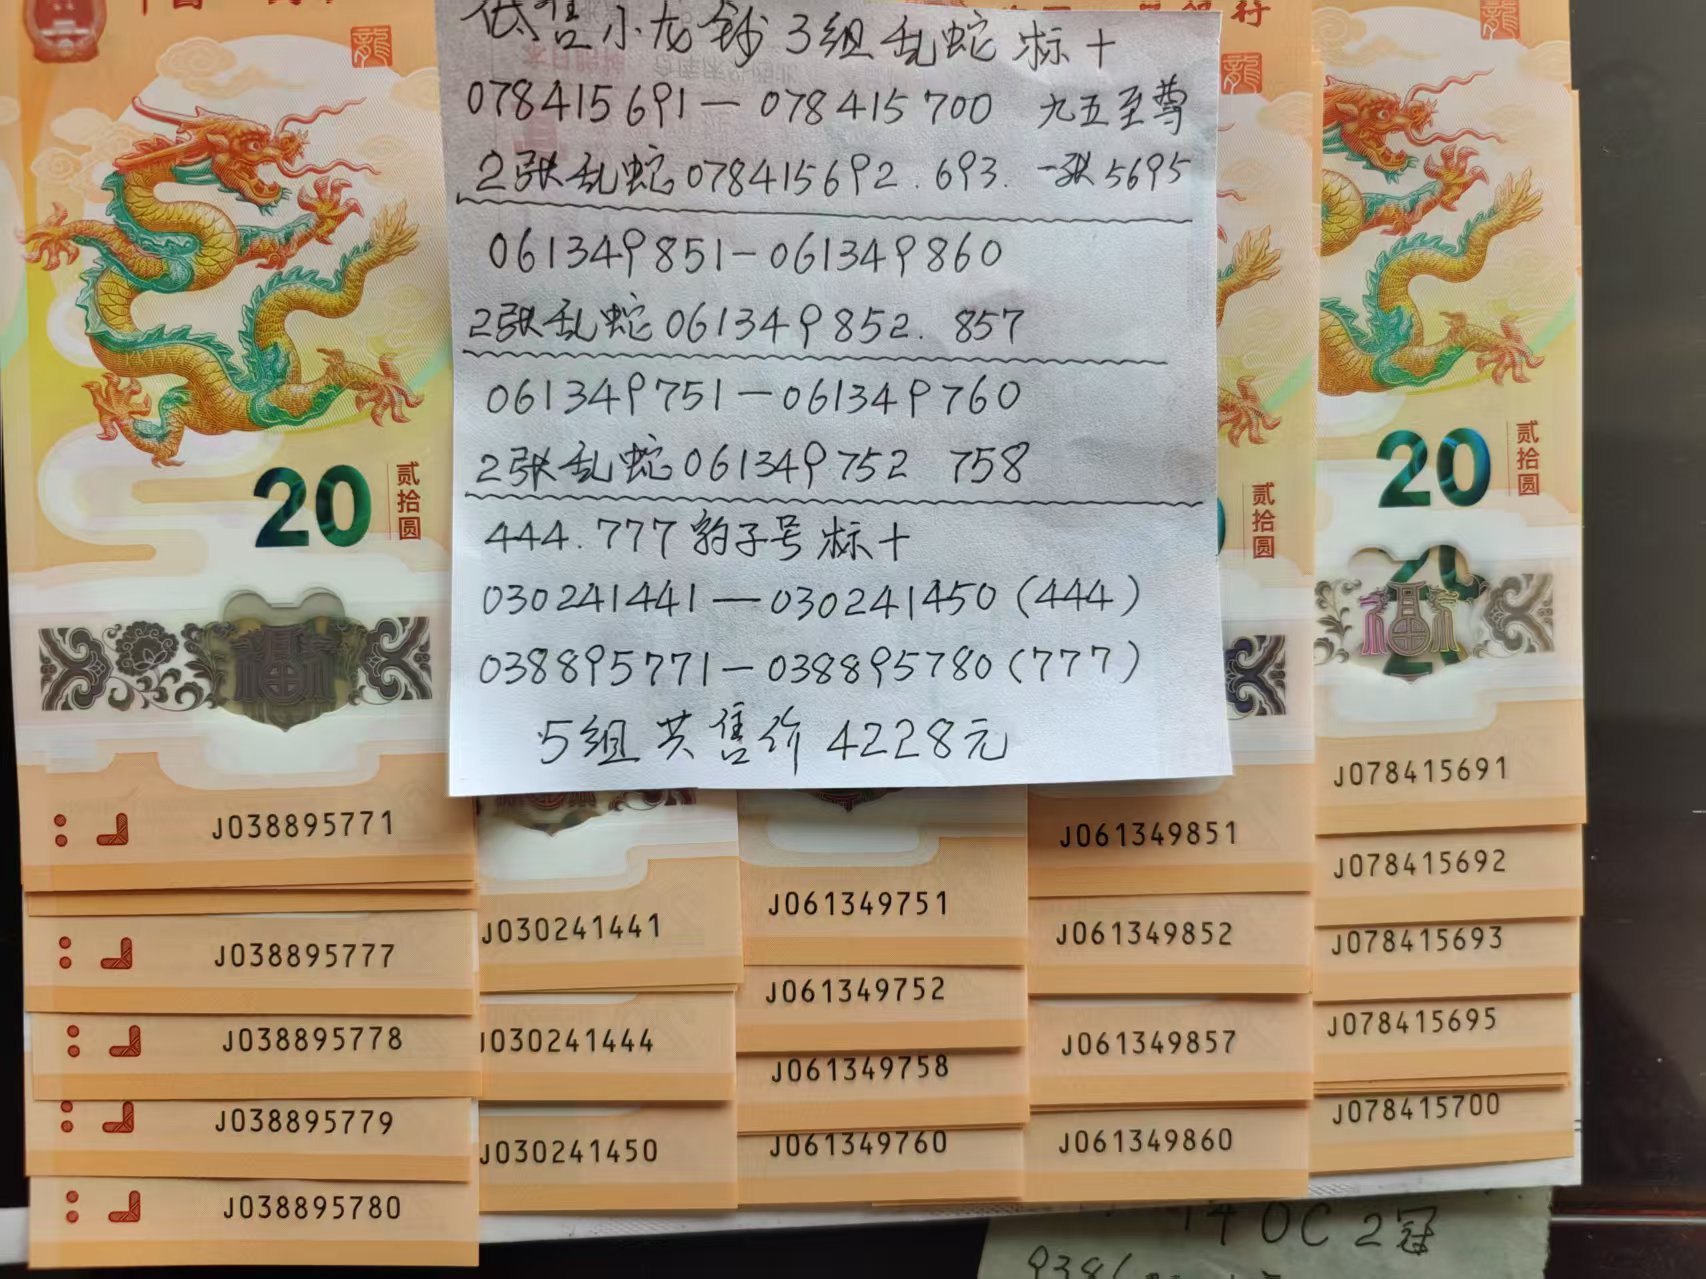 低售小龙钞3组乱蛇标十
078415691—078415700 九五至尊
2张乱蛇078415692.693.一张5695
061349851—061349860
2张乱蛇061349852.857
061349751—061349760
2张乱蛇061349752 758
444.777豹子号标十
030241441—030241450(444)
038895771—038895780(777)
5组共售价4228元
龍
龍
龍
20
贰拾圆
贰拾圆
20
贰拾圆
J038895771
J038895777
J038895778
J038895779
J038895780
J030241441
J030241444
J030241450
J061349751
J061349752
J061349758
J061349760
J061349851
J061349852
J061349857
J061349860
J078415691
J078415692
J078415693
J078415695
J078415700
2冠